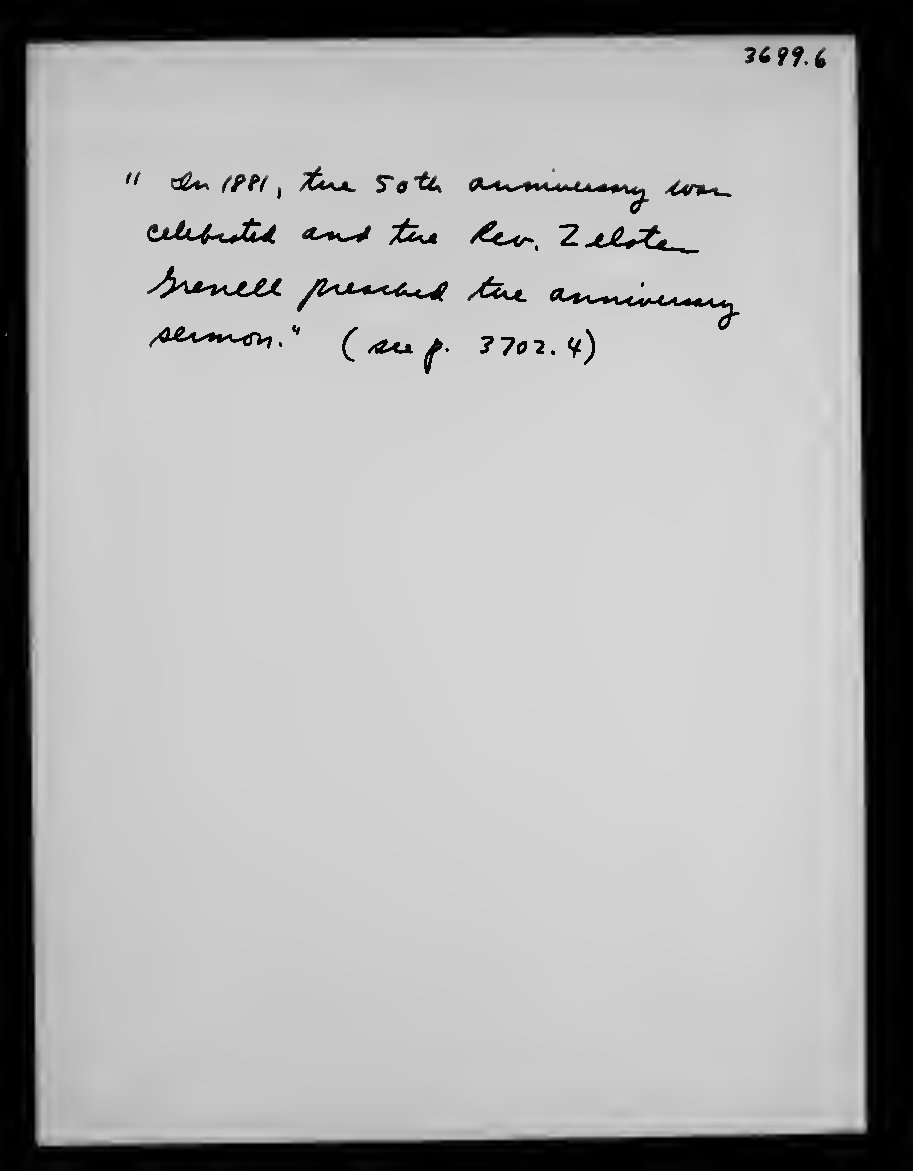 3699.6
" In 1881, the 50th anniversary was
celebrated and the Rev. Zelotes
Grenell preached the anniversary
sermon." (see p. 3702.4)